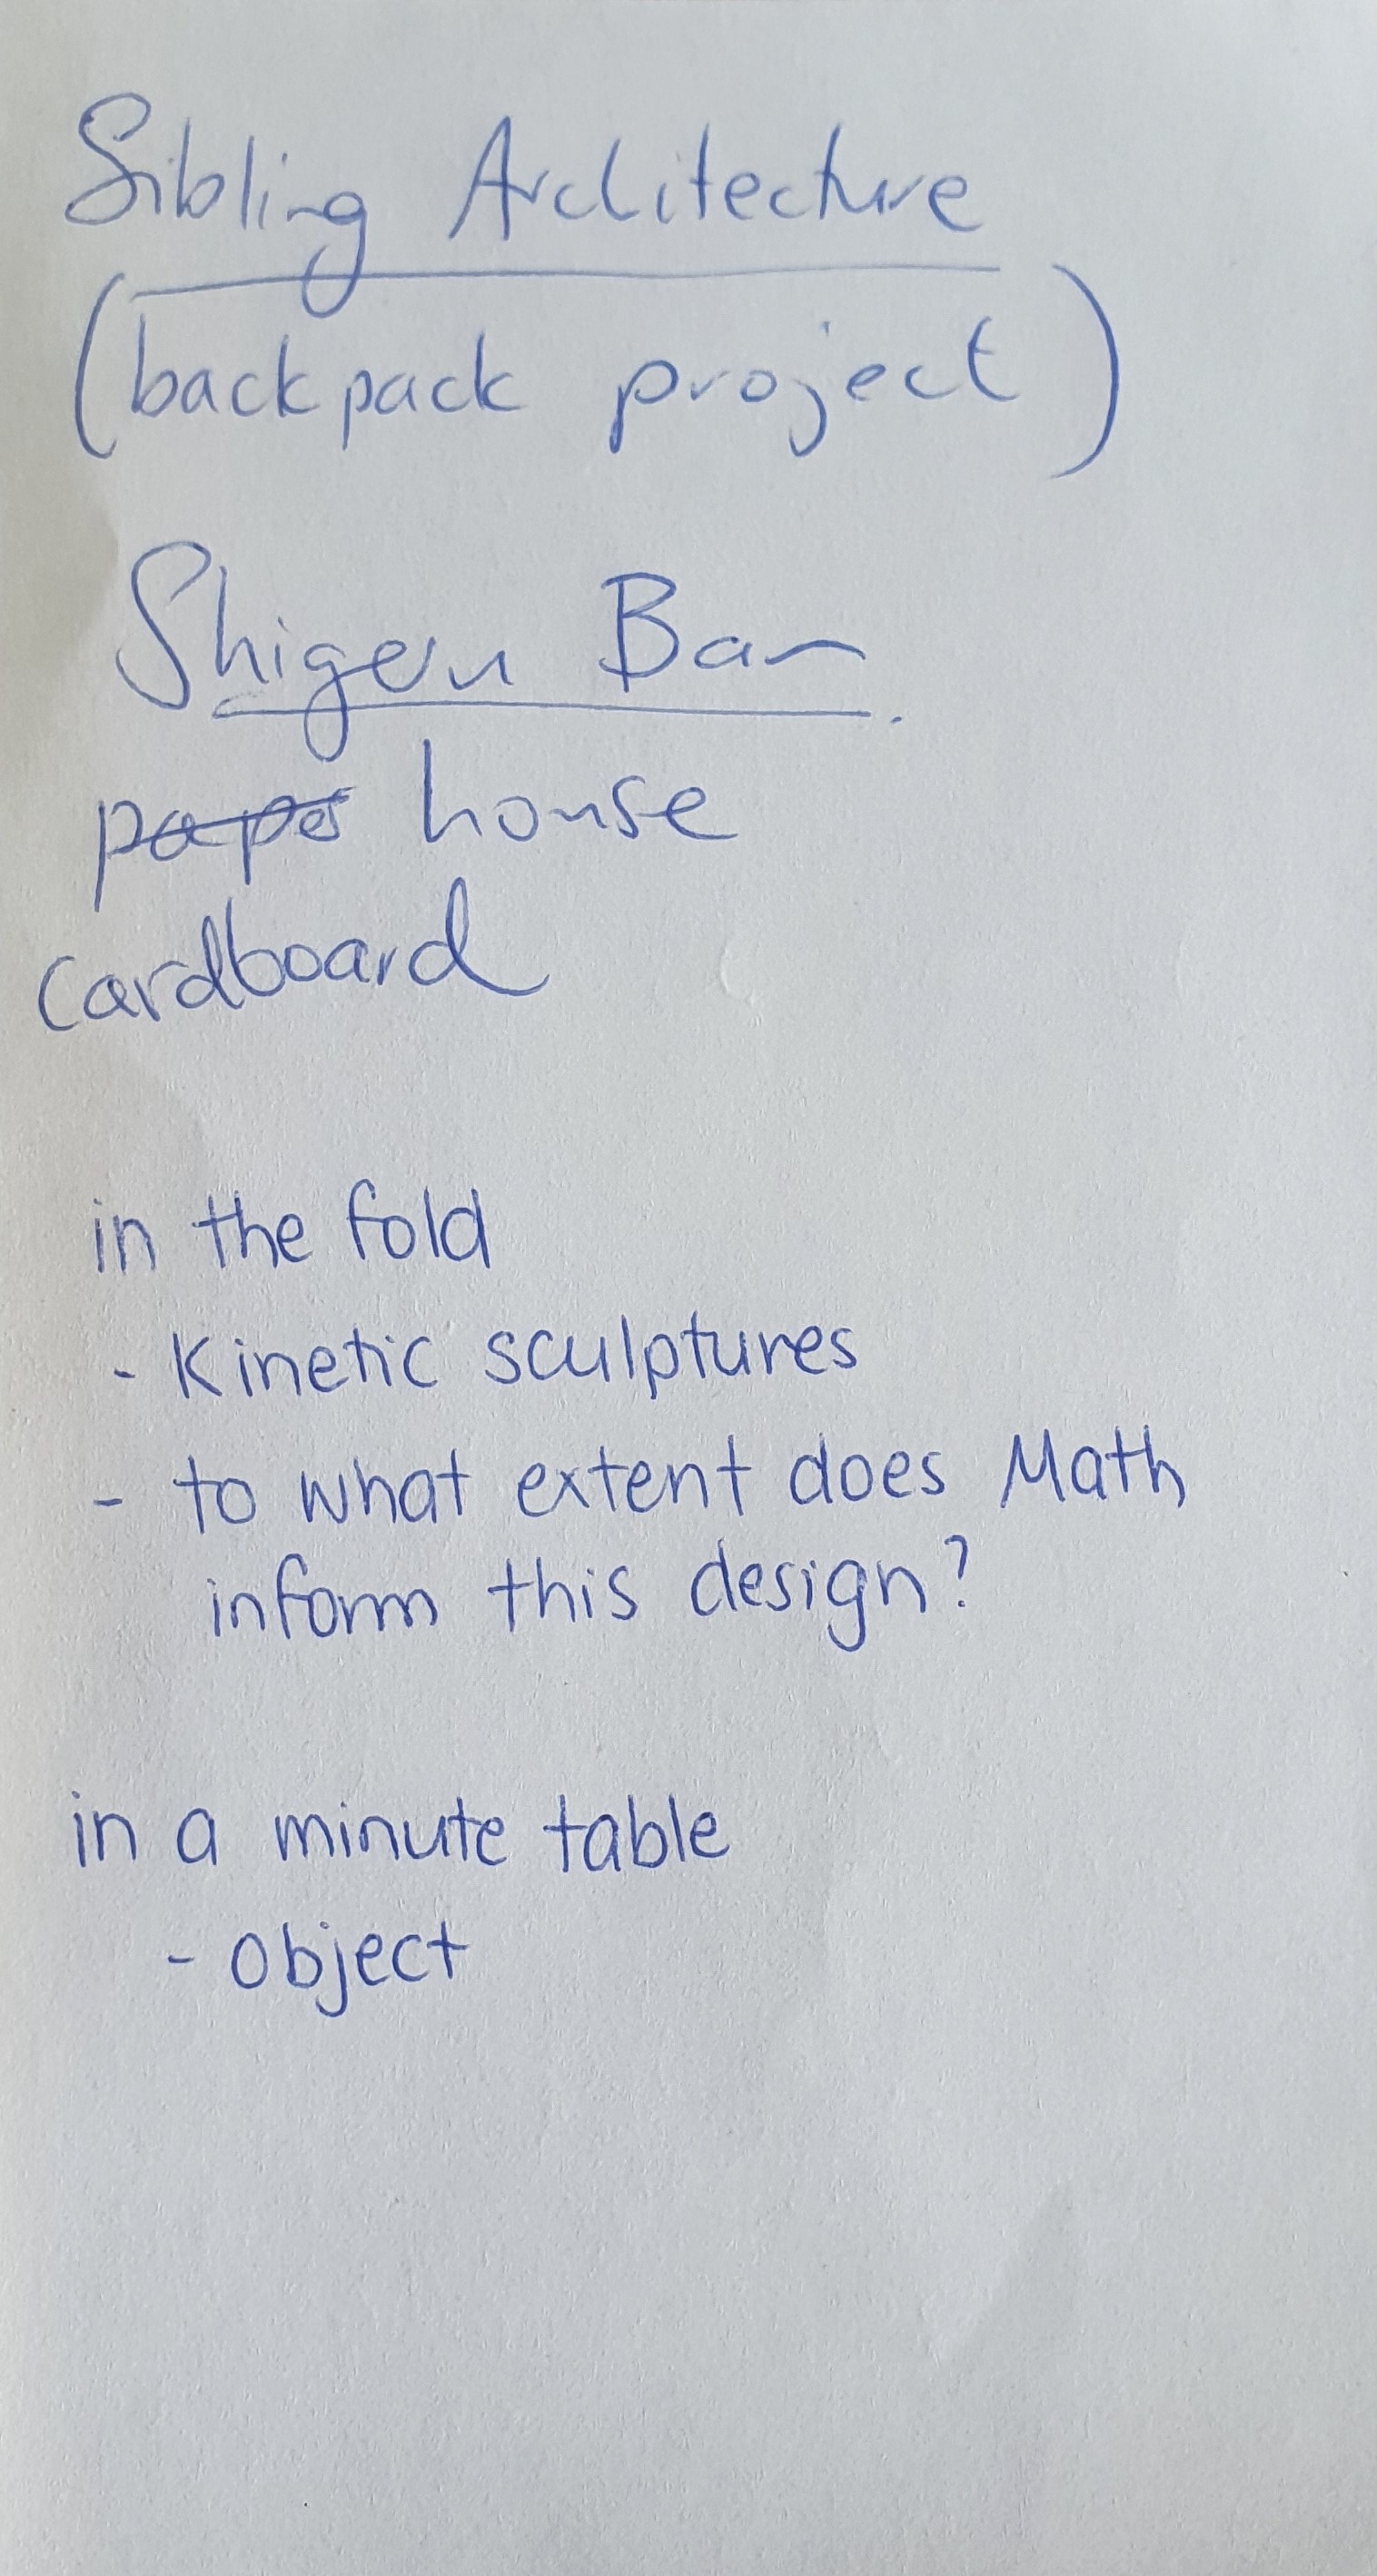 Sibling Architecture
(backpack project)
Shigeru Ban.
paper house
cardboard
in the fold
- Kinetic sculptures
- to what extent does Math
inform this design?
in a minute table
- object